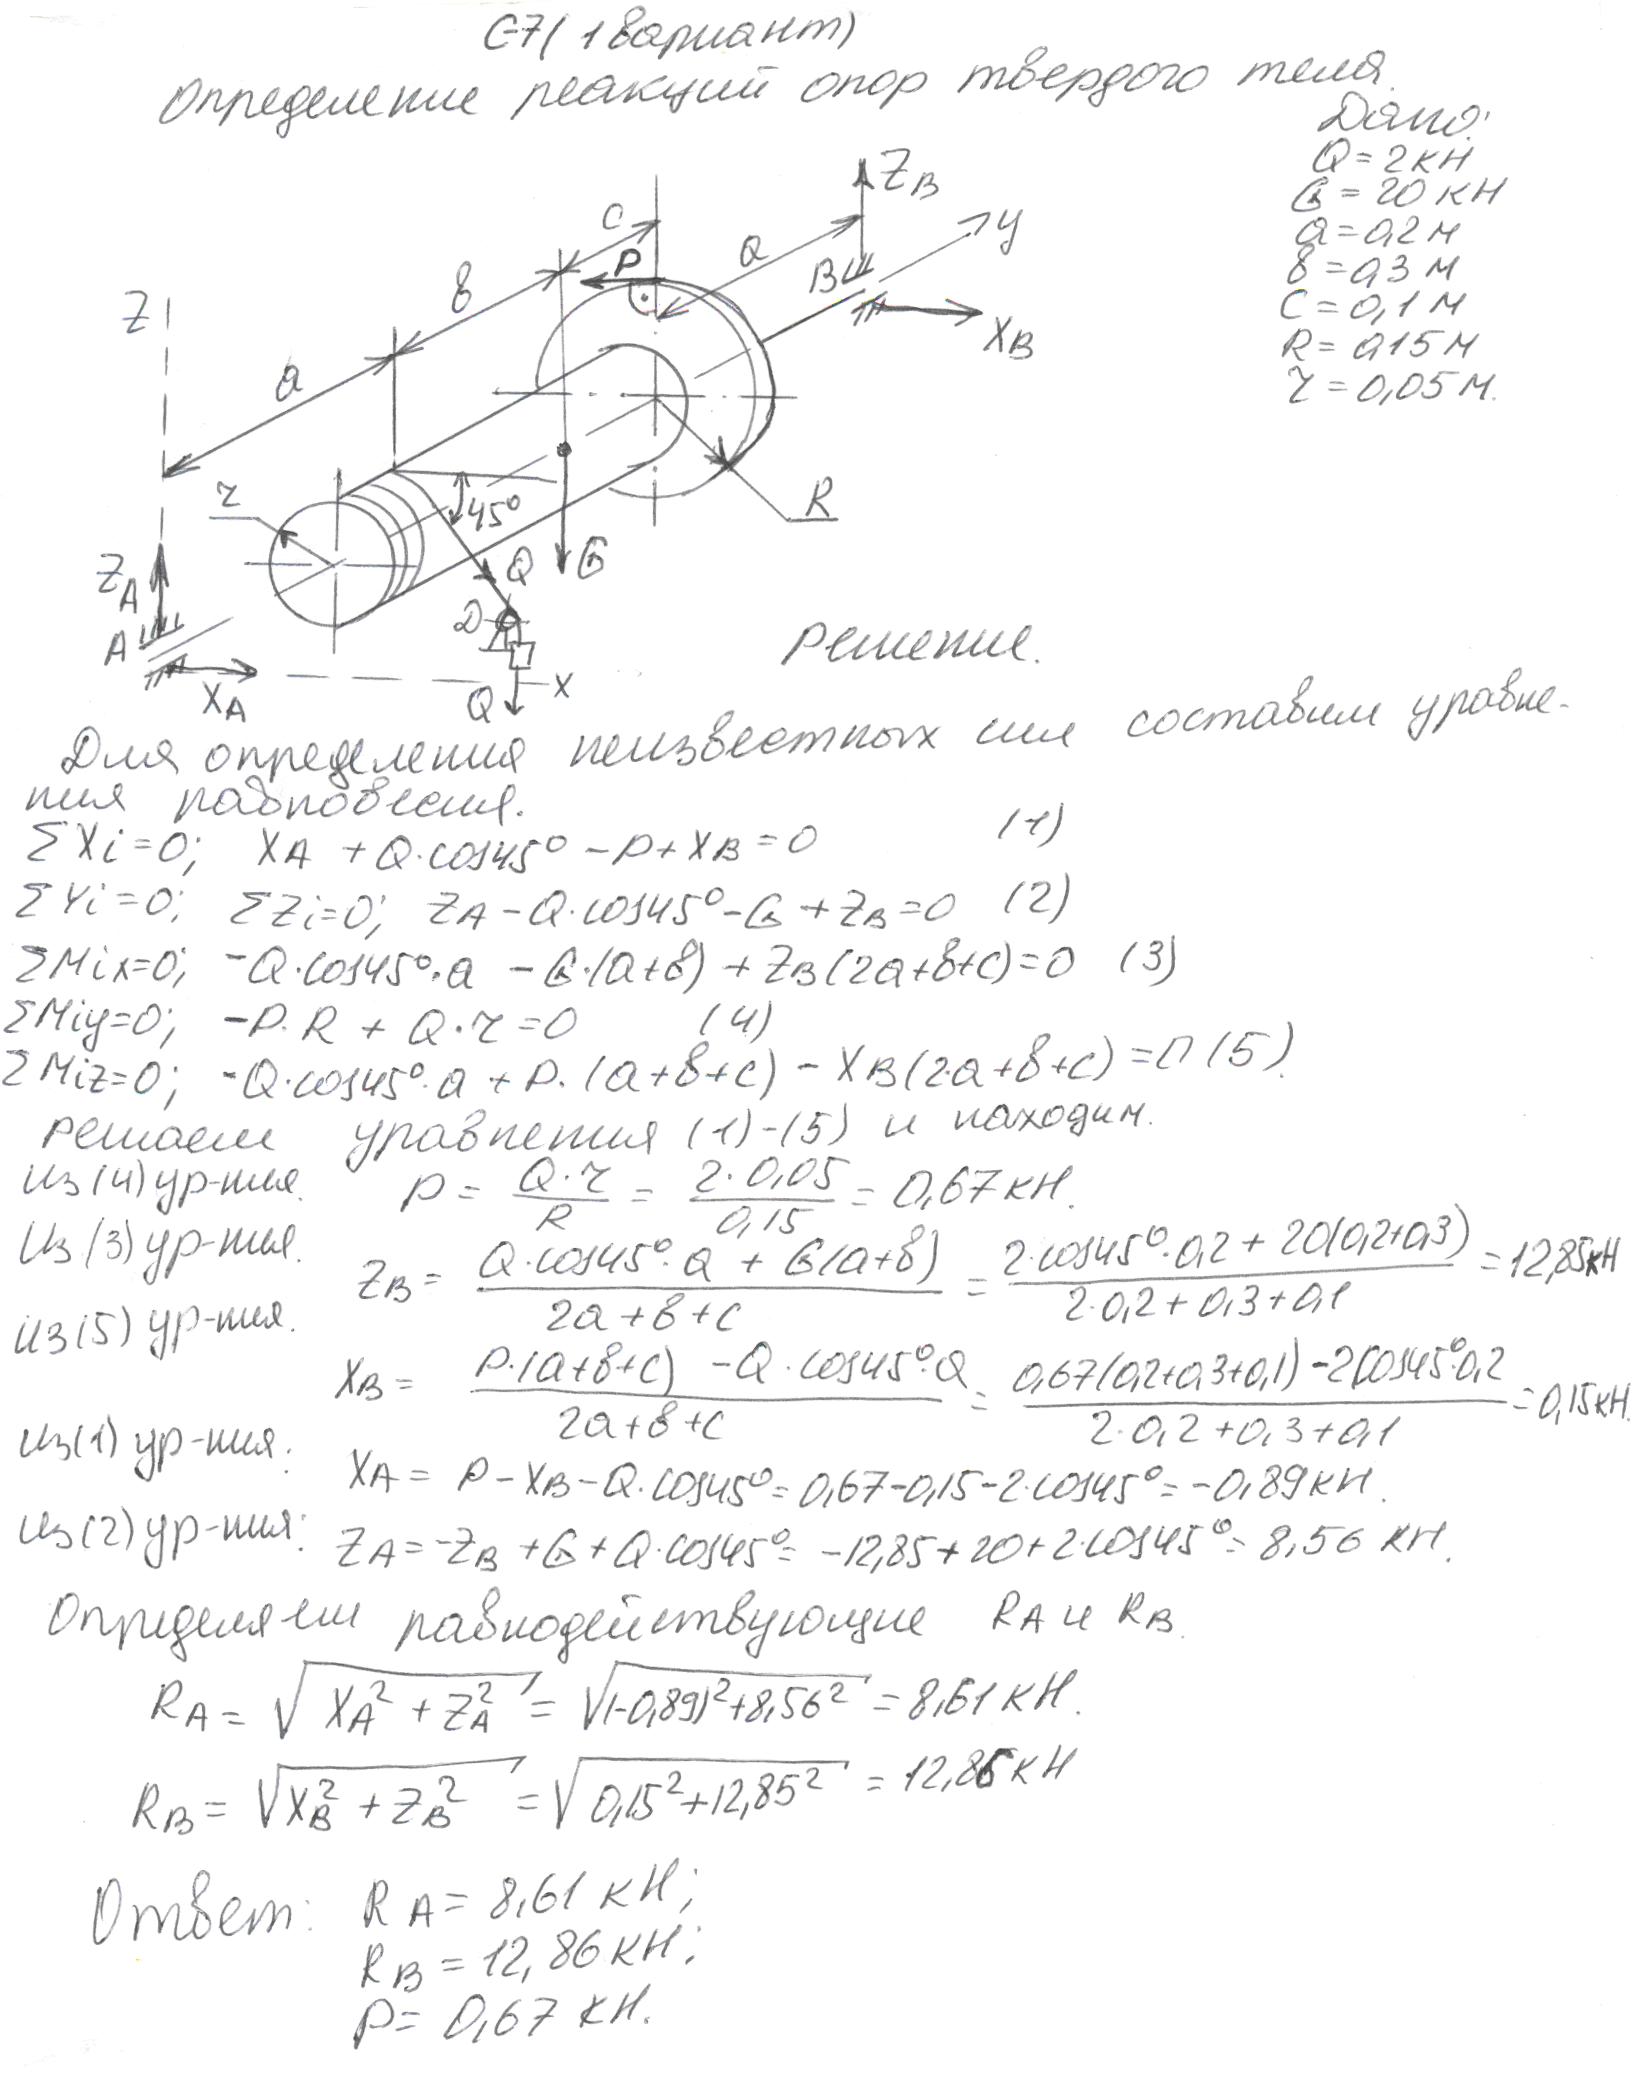 С-7( 1 вариант)
Определение реакций опор твердого тела.
Дано:
Q = 2 кН
G = 20 кН
a = 0,2 м
в = 0,3 м
C = 0,1 м
R = 0,15 м
r = 0,05 м.
ZB
y
C
a
P
B
XB
в
Z
a
r
45°
R
ZA
Q
G
A
D
XA
Q
x
Решение.
Для определения неизвестных сил составим уравне-
ния равновесия.
ΣXi=0; XA + Q·cos45° - P + XB = 0 (1)
ΣYi=0; ΣZi=0; ZA - Q·cos45° - G + ZB = 0 (2)
ΣMix=0; -Q·cos45°·a - G·(a+в) + ZB(2a+в+c) = 0 (3)
ΣMiy=0; -P·R + Q·r = 0 (4)
ΣMiz=0; -Q·cos45°·a + P·(a+в+c) - XB(2·a+в+c) = 0 (5).
Решаем уравнения (1)-(5) и находим.
Из (4) ур-ния. P = Q·r / R = 2·0,05 / 0,15 = 0,67 кН.
Из (3) ур-ния. ZB = Q·cos45°·a + G(a+в) / 2a+в+c = 2·cos45°·0,2 + 20(0,2+0,3) / 2·0,2+0,3+0,1 = 12,85 кН
Из (5) ур-ния. XB = P·(a+в+c) - Q·cos45°·a / 2a+в+c = 0,67(0,2+0,3+0,1) - 2cos45°·0,2 / 2·0,2+0,3+0,1 = 0,15 кН.
Из (1) ур-ния: XA = P - XB - Q·cos45° = 0,67-0,15-2·cos45° = -0,89 кН.
Из (2) ур-ния: ZA = -ZB + G + Q·cos45° = -12,85+20+2·cos45° = 8,56 кН.
Определяем равнодействующие RA и RB.
RA = √XA² + ZA² = √(-0,89)²+8,56² = 8,61 кН.
RB = √XB² + ZB² = √0,15²+12,85² = 12,86 кН
Ответ: RA = 8,61 кН;
RB = 12,86 кН;
P = 0,67 кН.